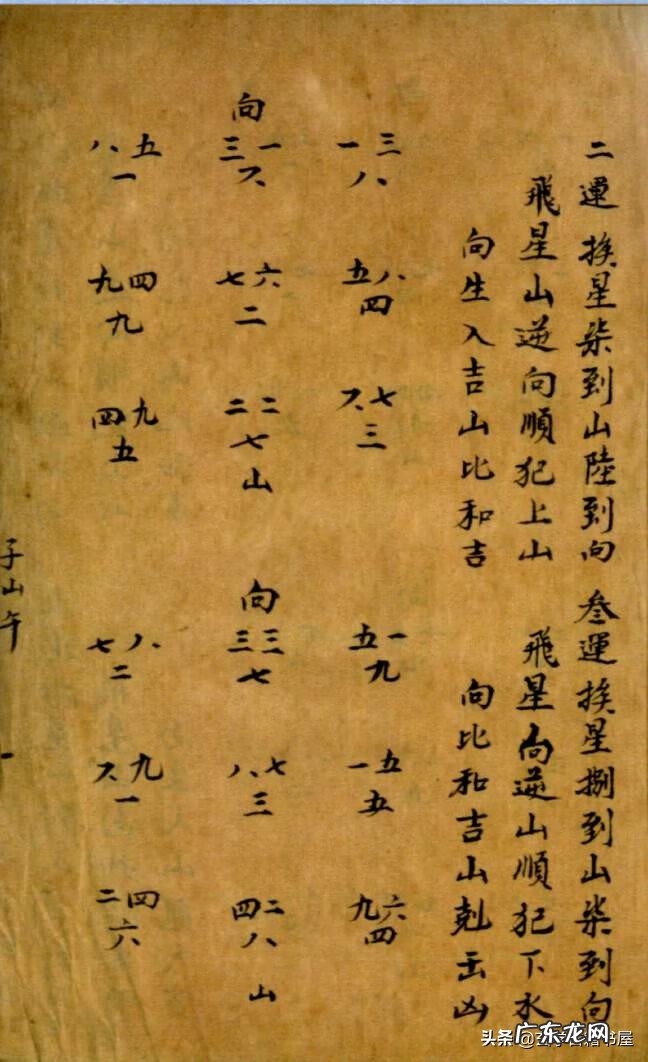 二運挨星柒到山陸到向
飛星山逆向順犯上山
向生入吉山比和吉
向
八五 三一 一三
一 六 八
九四 七六 五八
九 二 四
四九 二二 六七
五 七山 三
叁運挨星捌到山柒到向
飛星向逆山順犯下水
向比和吉山剋出凶
向
七八 三三 五一
二 七 九
六九 八七 一五
一 三 五
二四 四二 九六
六 八山 四
子山午
一
广东龙网
头条 @书屋